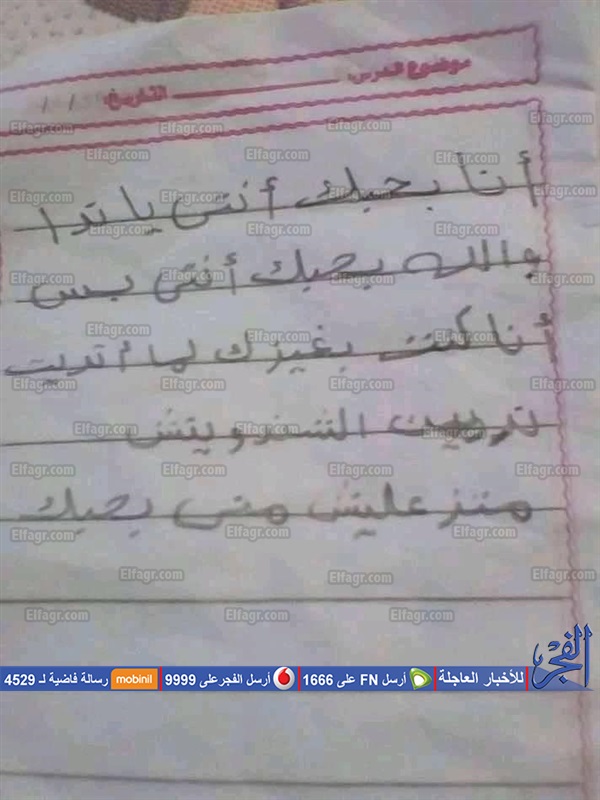 موضوع الدرس: التاريخ: / /
أنا بحبك أنتى يا ندا
والله بحبك أنتى بس
أنا كنت بغيزك لما اديت
نرمين الشندويتش
متزعليش منى بحبك
الفجر
للأخبار العاجلة أرسل FN على 1666 أرسل الفجر على 9999 mobinil رسالة فاضية لـ 4529
Elfagr.com